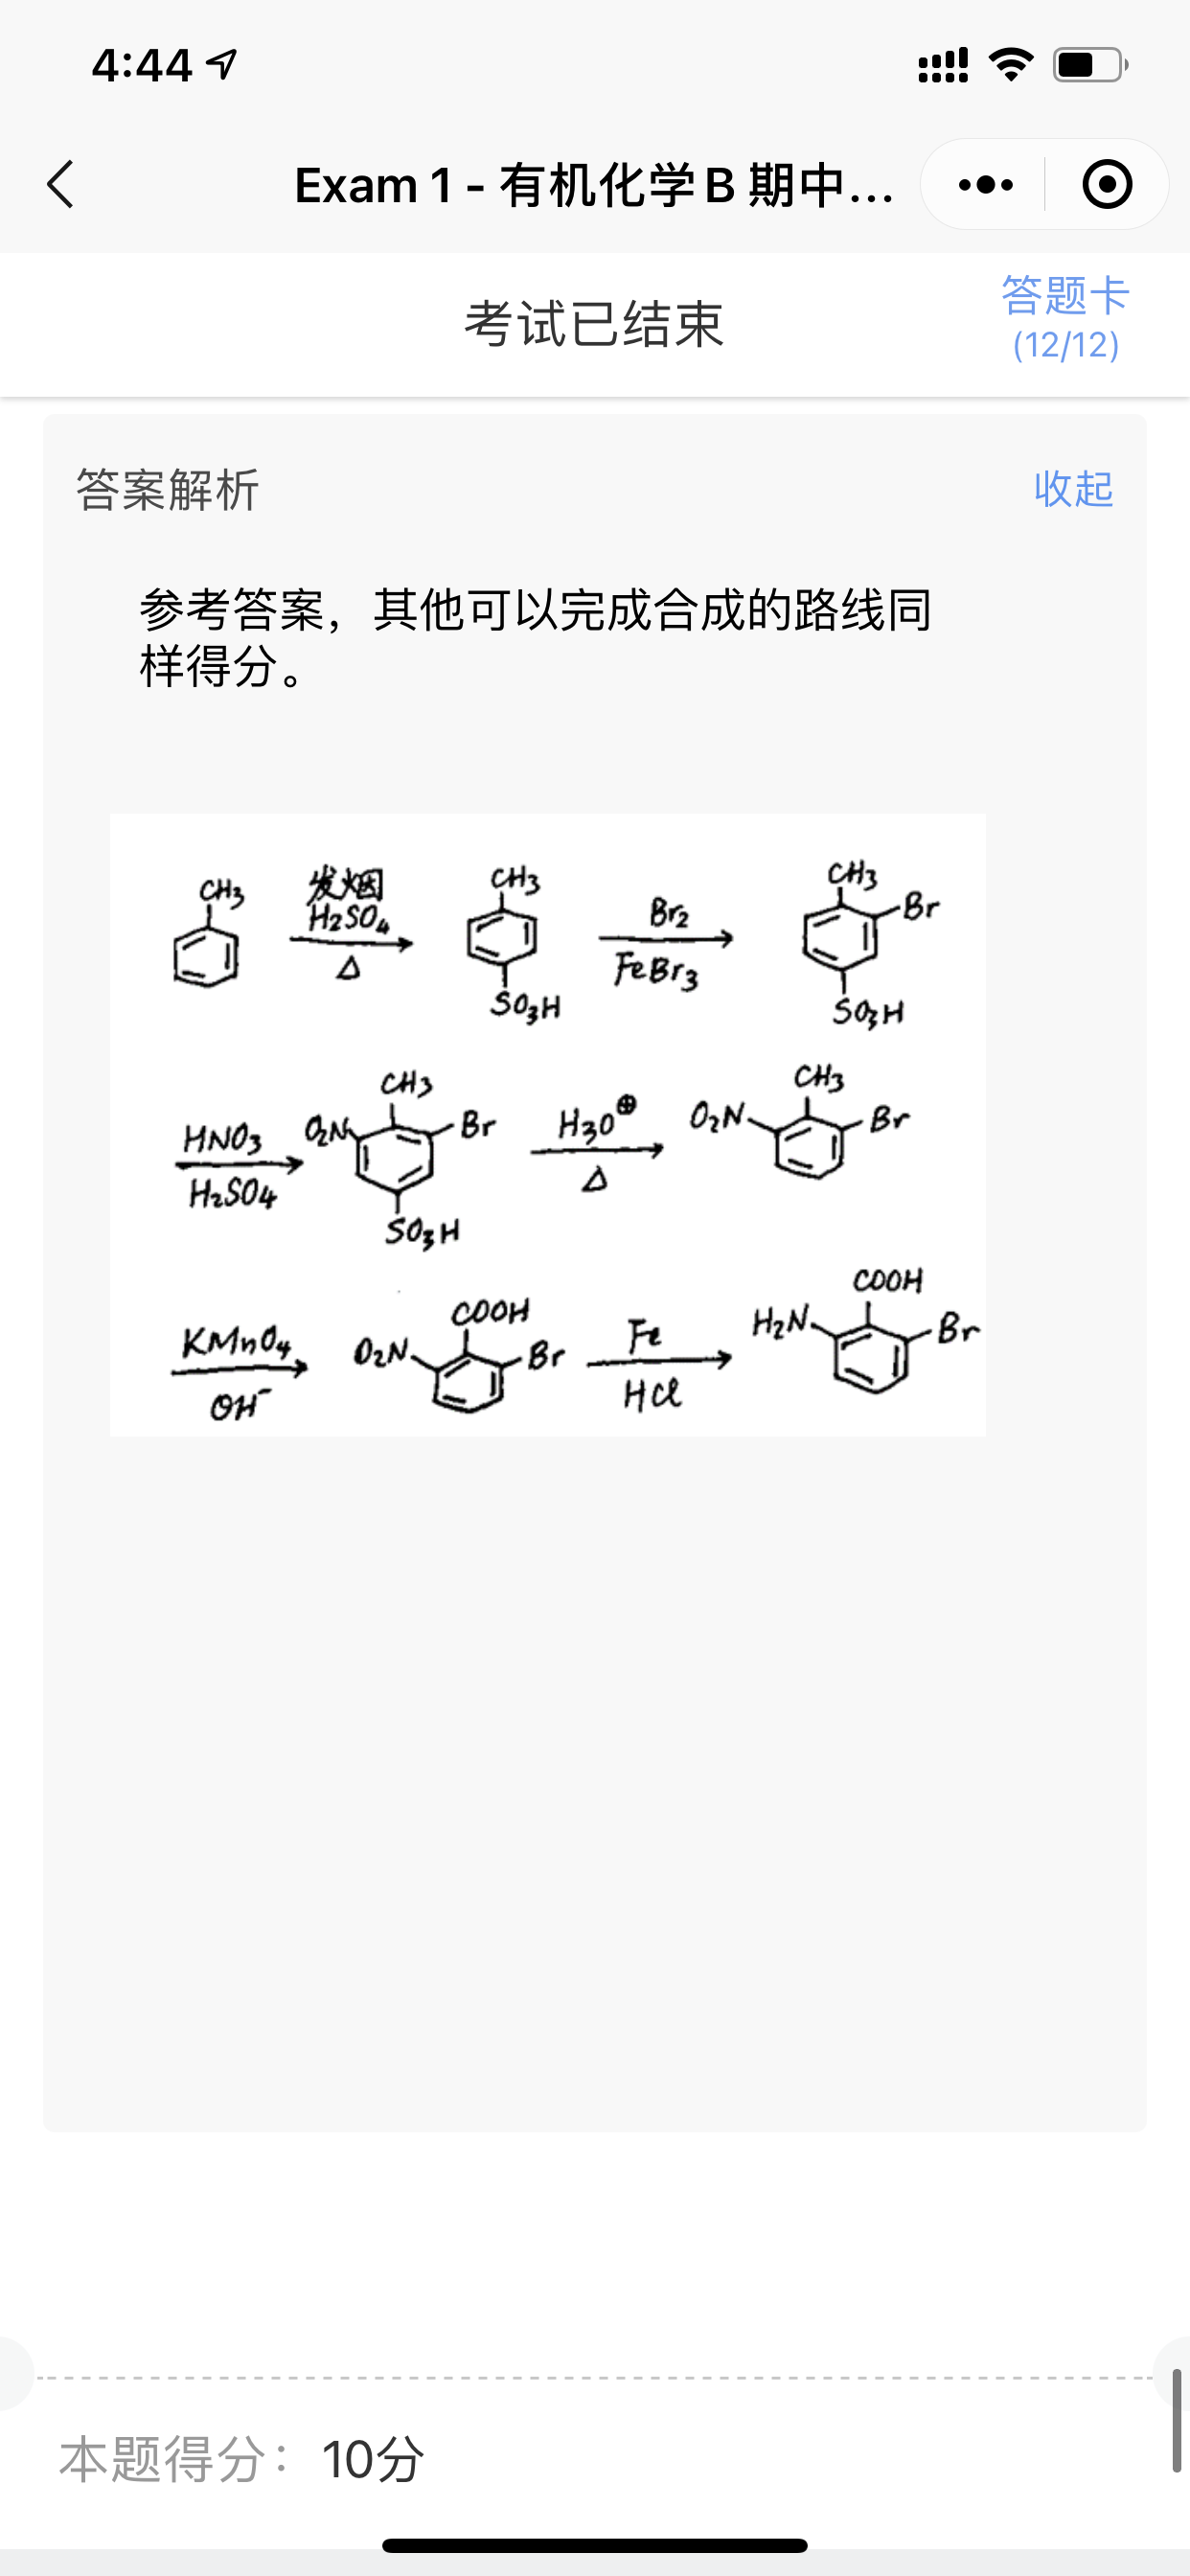 4:44
Exam 1 - 有机化学B 期中...
考试已结束
答题卡
(12/12)
答案解析
收起
参考答案，其他可以完成合成的路线同
样得分。
CH3 发烟 H2SO4 Δ CH3 SO3H Br2 FeBr3 CH3 Br SO3H
HNO3 H2SO4 O2N CH3 Br SO3H H3O⊕ Δ O2N CH3 Br
KMnO4 OH⁻ O2N COOH Br Fe HCl H2N COOH Br
本题得分：10分